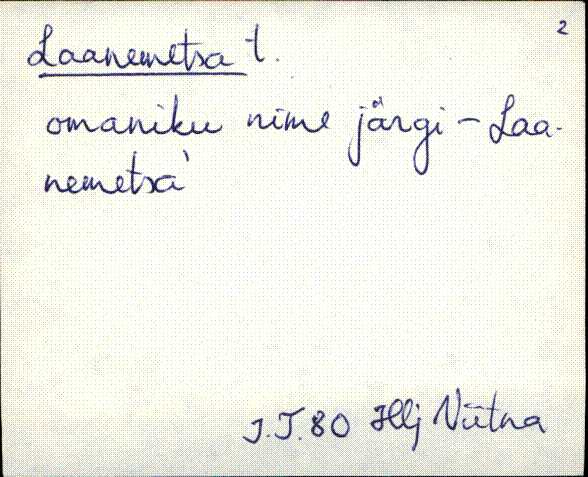 2
Laanemetsa t.
omaniku nime järgi – Laa-
nemetsa'
J.T. 80 Hlj Viitna